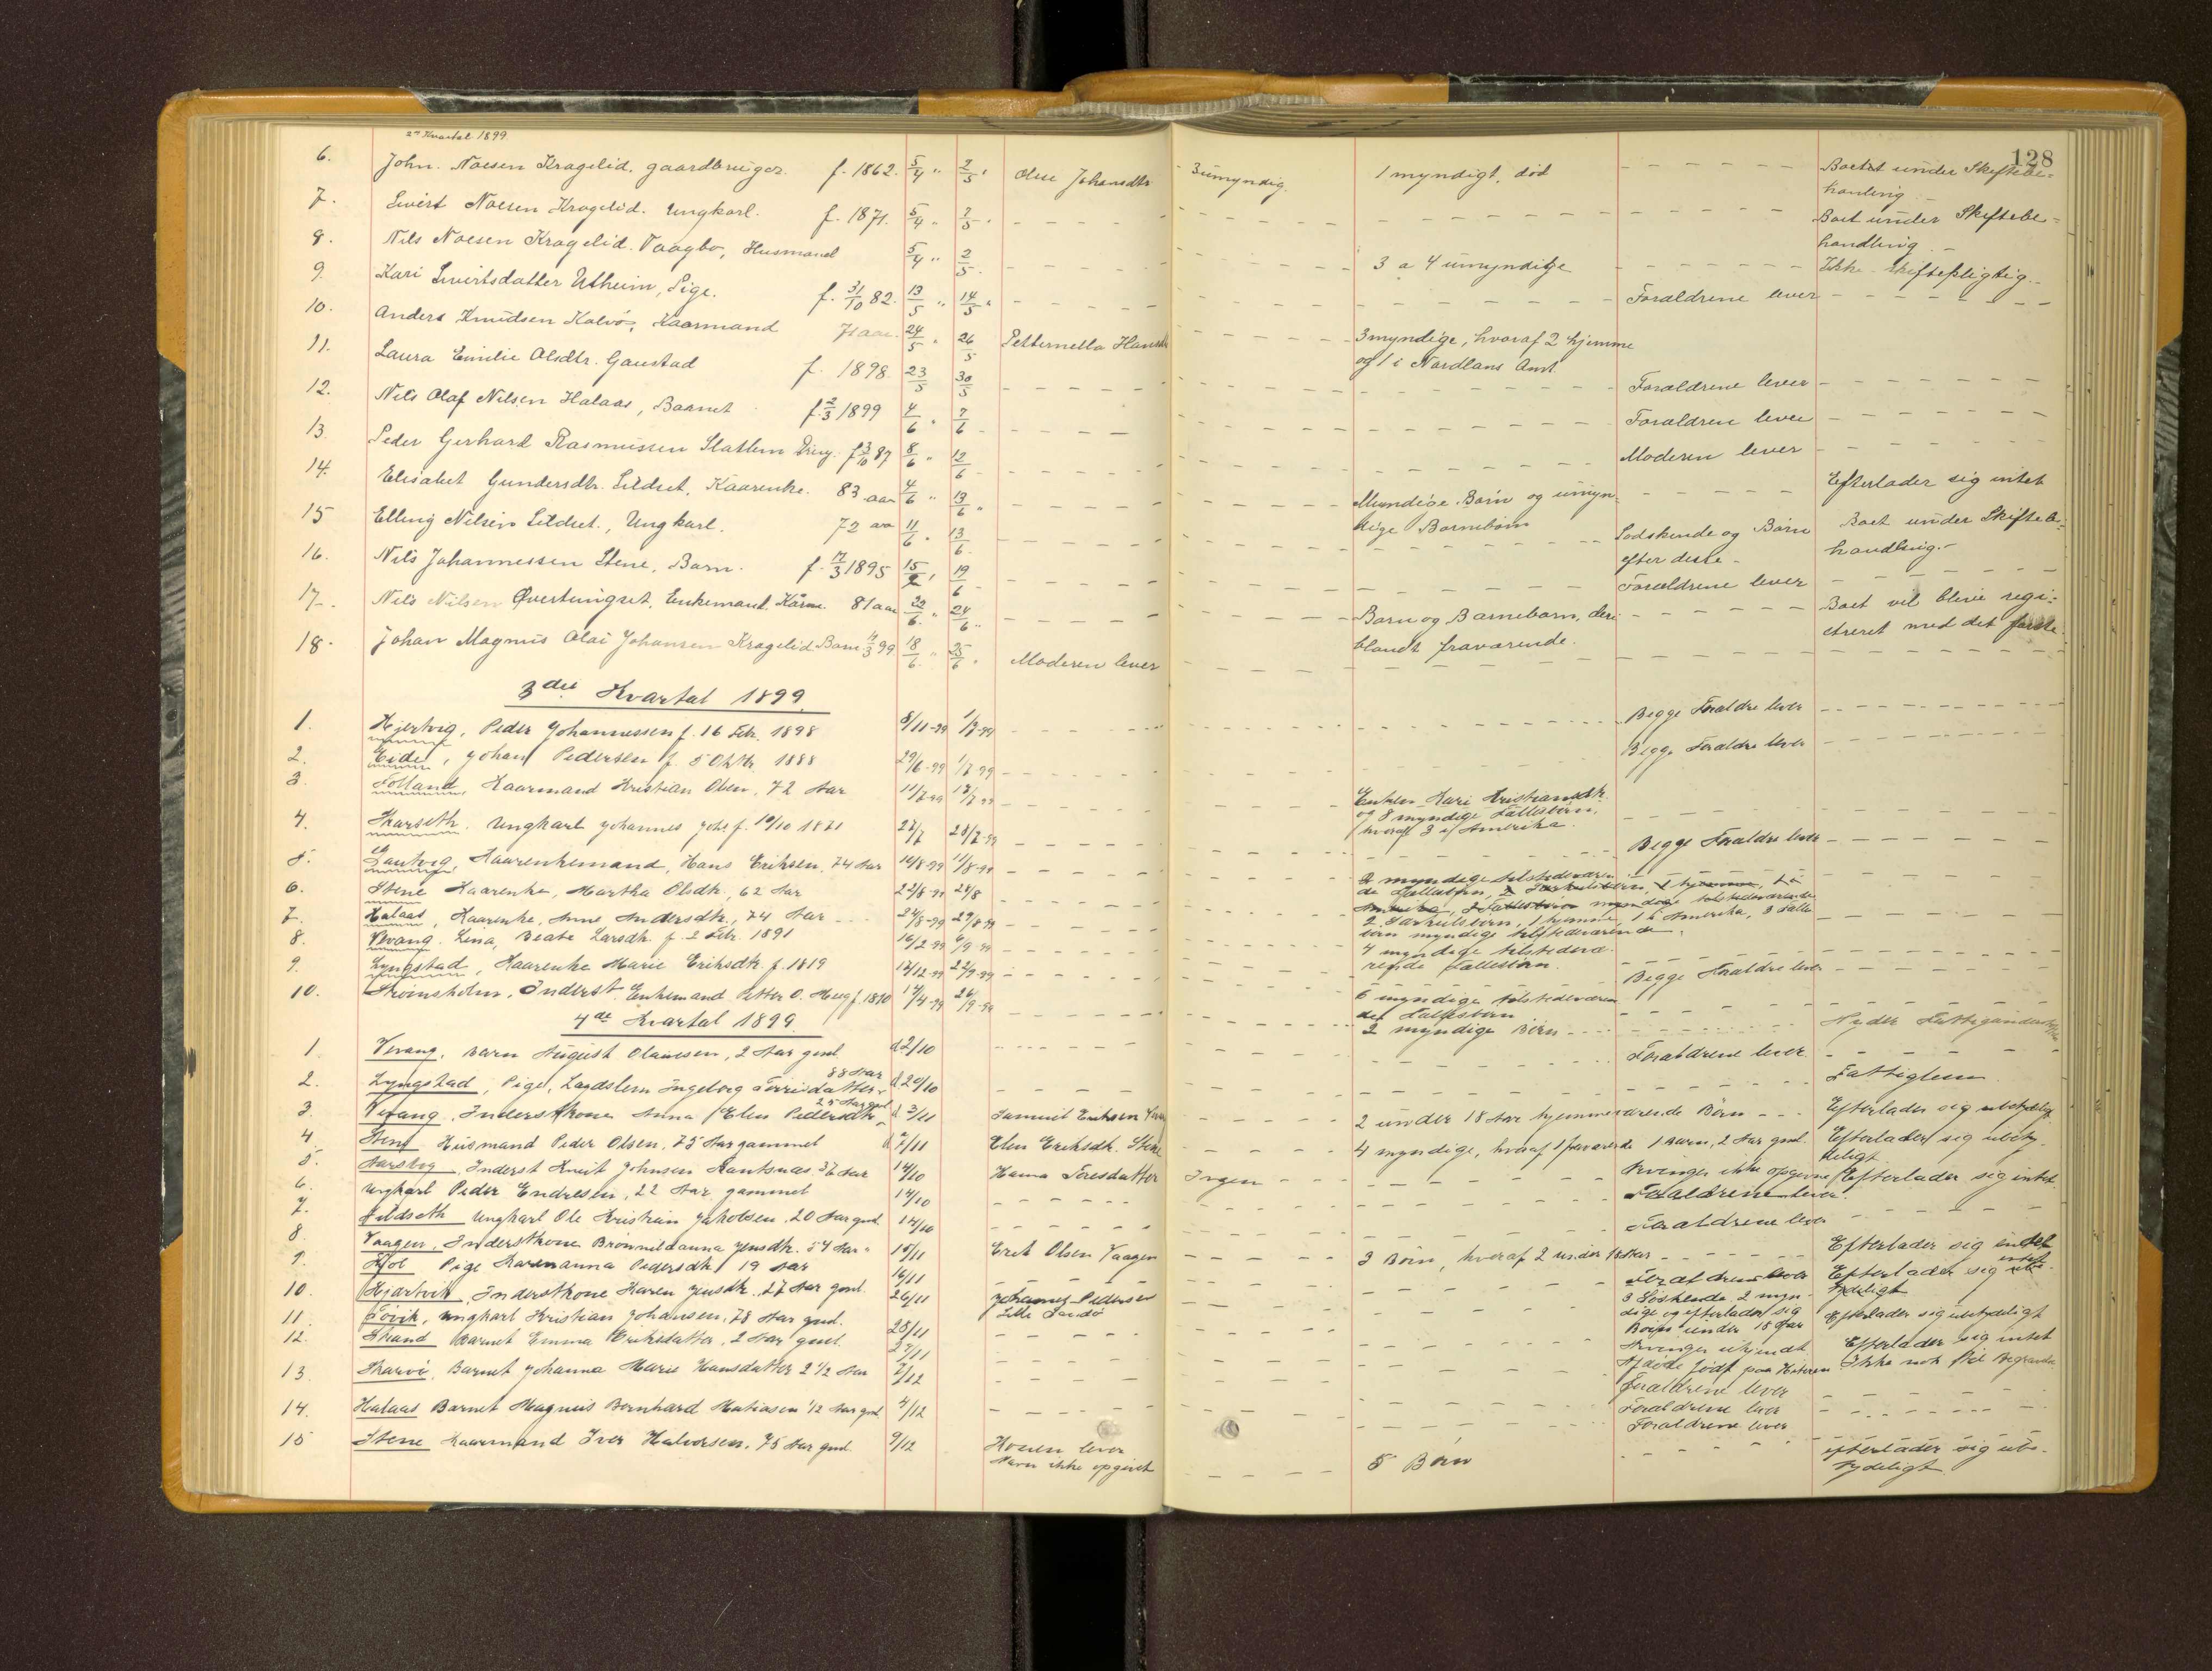 128
2det Kvartal 1899
6. John Noesen Kragelid, gaardbruger. f. 1862. 5/4 " 2/5 " Oline Johansdtr 3 umyndig. 1 myndigt, död Boetet under Skiftebe-
handling
7. Sivert Noesen Kragelid. Ungkarl. f. 1871. 5/4 " 2/5 " Boet under Skiftebe-
handling
8. Nils Noesen Kragelid. Vaagbø, Husmand 5/4 " 2/5 3 a 4 umyndige Ikke skiftepligtig.
9. Kari Sivertsdatter Utheim, Pige. f. 31/10 82. 13/5 " 14/5 " Forældrene lever
10. Anders Knudsen Kalvö, Kaarmand 71 aar. 24/5 " 26/5 Petternella Hansdtr 3 myndige, hvoraf 2 hjemme
og 1 i Nordlans Amt.
11. Laura Emilie Olsdtr. Gaustad f. 1898. 23/5 30/5 Forældrene lever
12. Nils Olaf Nilsen Halaas, Barnet f. 2/3 1899 4/6 " 7/6 Forældrene lever
13. Peder Gerhard Rasmussen Slatlem Dreng. f 3/10 87 8/6 " 12/6 Moderen lever
14. Elisabet Gundersdtr. Sildset, Kaarenke. 83 aar 4/6 " 13/6 " Myndige Børn og umyn-
dige Barnebörn Efterlader sig intet
15 Elling Nilsen Sildset., Ungkarl. 72 aar 11/6 " 13/6 Sødskende og Børn
efter disse - Boet under Skiftebe-
handling.-
16. Nils Johannessen Stene, Barn. f. 17/3 1895 15/2 " 19/6 Forældrene lever
17. Nils Nilsen Øvertungset, Enkemand. Kaarm. 81 aar 22/6 " 24/6 " Børn og Barnebørn, der-
blandt fraværende. Boet vil blive regi-
streret med det første
18. Johan Magnus Olai Johansen Kragelid Barn 11/3 99 18/6 " 25/6 " Moderen lever
3die Kvartal 1899
1. Hjertvig, Peder Johannessen f. 16 Feb. 1898 8/11-99 1/7-99 Begge Forældre lever
2. Eide, Johan Pedersen f. 5 Oktbr. 1888 29/6-99 1/7-99 Begge Forældre lever
3. Folland, Kaarmand Kristian Olsen, 72 Aar 11/7-99 13/7 99 Enken Kari Kristiansdtr.
og 8 myndige Fællesbørn,
hvoraf 3 i Amerika.
4. Skarseth. Ungkarl Johannes Johs. f. 19/10 1871 22/7 28/7-99 Begge Forældre lever
5. Kaarenkemand, Hans Eriksen, 74 Aar 10/8-99 11/8-99
6. Stene Kaarenke, Martha Olsdtr., 62 Aar 22/8-99 24/8
7. Halaas, Kaarenke, Anne Andersdtr., 74 Aar 24/8-99 29/8-99 2 Særkulsbørn, 1 hjemme, 1 i Amerika, 3 Fælles-
børn myndige tilstedeværende.
8. Vevang. Lina, Beate Larsdtr. f. 2 Febr. 1891 16/2-99 6/9-99 Begge Forældre lever
9. Lyngstad, Kaarenke Marie Eriksdtr. f. 1819 12/12-99 22/9-99 4 myndige tilstedevæ-
rende Fællesbørn.
10. Strømsholm, Inderst Enkemand Petter O. Haug f. 1810 14/4-99 26/9-99 6 myndige tilstedeværen-
de Fællesbørn
4de Kvartal 1899
2 myndige Børn Nyder Fattigunderst.
1. Vevang, Barn August Olaussen, 2 Aar gml. d 2/10 Forældrene lever
2. Lyngstad, Pige, Lægdslem Ingeborg 88 Aar d 20/10 Fattiglem
3. Vevang, Inderstkone Anna Elen Pedersdtr. 25 Aar gml. d 3/11 Samuel Eriksen 2 under 18 Aar hjemmeværende Børn Efterlader sig ubetydelig
4 Stene Husmand Peder Olsen, 75 Aar gammel d 7/11 Elen Eriksdtr. Stene 4 myndige, hvoraf 1 fraværende 1 Barn, 2 Aar gml. Efterlader sig ubety-
deligt
5. Aarsbog, Inderst Knut Johnsen Rautsnæs 36 Aar 14/10 Hanna Toresdatter Ingen Arvinger ikke opgivne Efterlader sig intet
6. Ungkarl Peder Endresen, 22 Aar gammel 14/10 Forældrene lever
7. Sildseth Ungkarl Ole Kristian Jakobsen, 20 Aar gml. 14/10 Forældrene lever
8. Vaagen, Inderstkone Brønnildanna Jensdtr. 54 Aar " 15/11 Erik Olsen Vaagen 3 Børn, hvoraf 2 under 18 Aar Efterlader sig intet
9. Hol Pige Karenanna Pedersdtr. 19 Aar 16/11 Forældrene lever Efterlader sig ube-
tydeligt
10. Hjertvik, Inderstkone Karen Jensdtr., 27 Aar gml. 26/11 Johannes Pedersen
Lille Sandø
11. Tövik, Ungkarl Kristian Johansen, 78 Aar gml. 28/11 3 Söskende 2 myn-
dige og efterlader sig
Børn under 18 Aar Efterlader sig ubetydeligt
12. Strand Barnet Emma Eriksdatter, 2 Aar gml. 27/11 Arvinger ukjendt. Efterlader sig intet
13. Skarvö, Barnet Johanna Marie Hansdatter 2 1/2 Aar 7/12 Afdöde födt paa Hiteren Ikke nok til Begravelse
Forældrene lever
14. Halaas Barnet Magnus Bernhard Matiasen 1/2 Aar gml 4/12 Forældrene lever
Forældrene lever
15 Stene Kaarmand Iver Halvorsen, 75 Aar gml. 9/12 Konen lever
Navn ikke opgivet 5 Børn Efterlader sig ube-
tydeligt